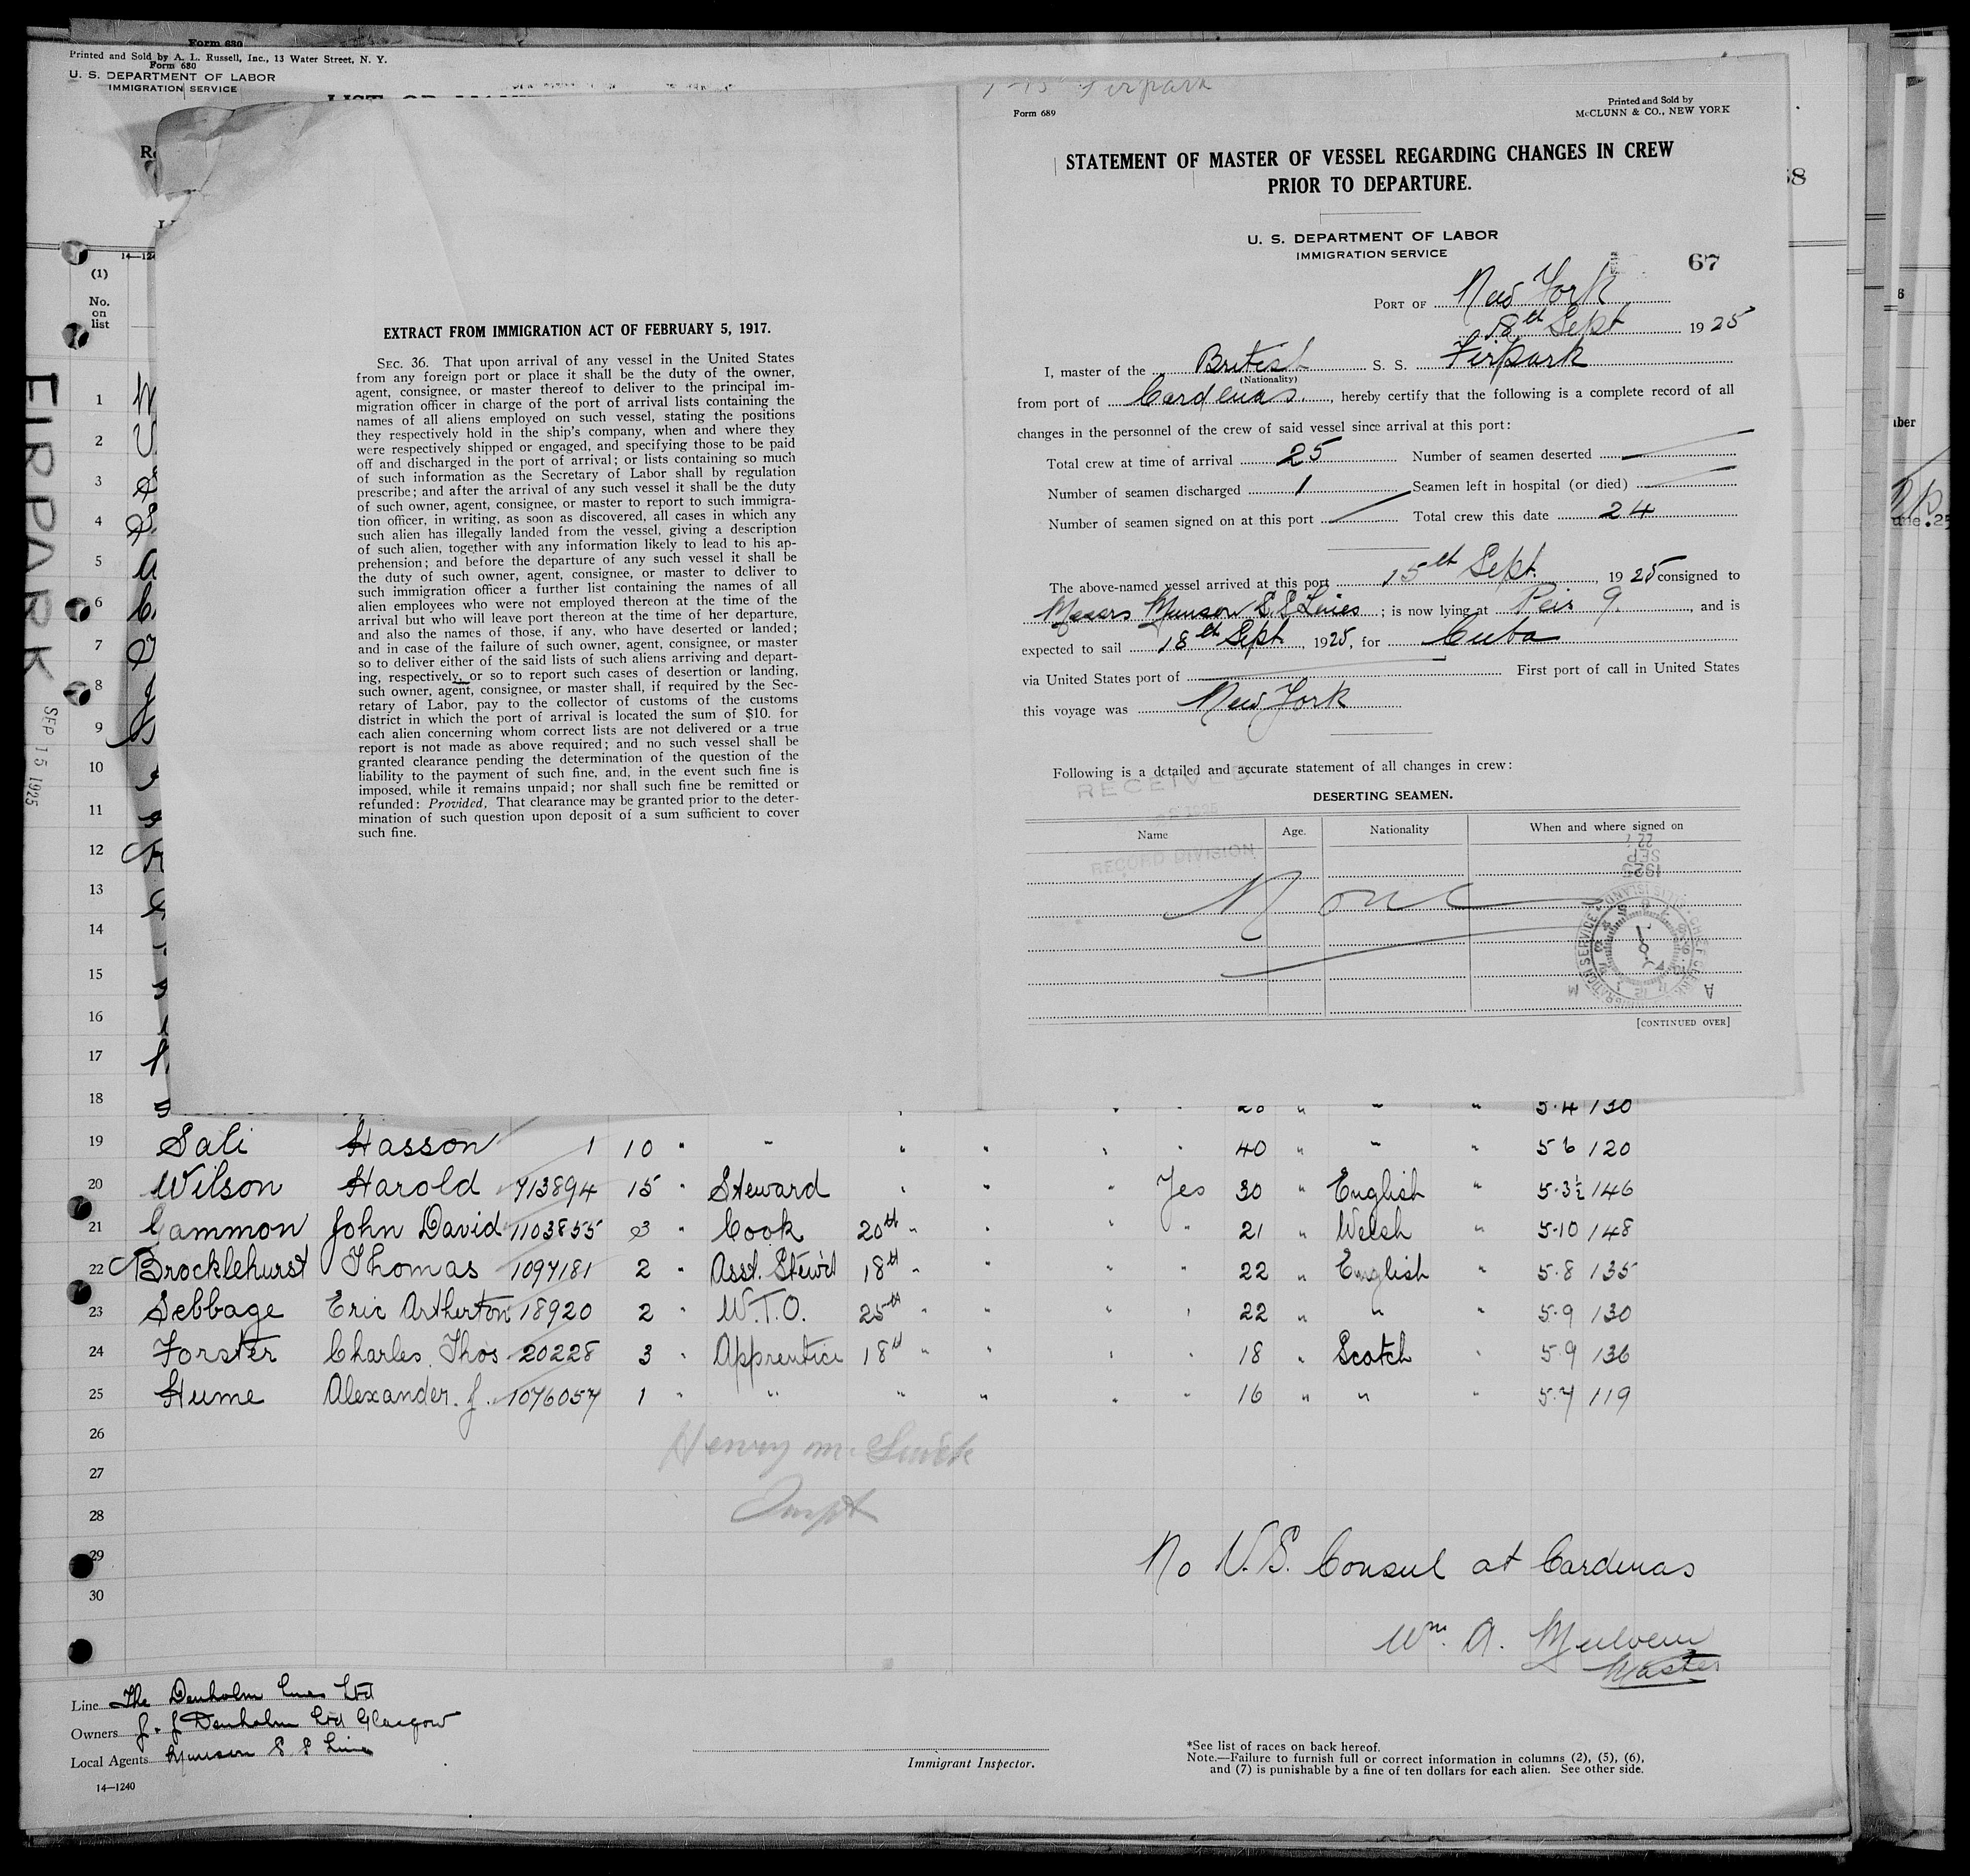 Form 680
Printed and Sold by A. L. Russell, Inc., 13 Water Street, N. Y.
Form 680
U. S. DEPARTMENT OF LABOR
IMMIGRATION SERVICE
(1)
No.
on
list
FIRPARK
SEP 15 1925
EXTRACT FROM IMMIGRATION ACT OF FEBRUARY 5, 1917.
SEC. 36. That upon arrival of any vessel in the United States
from any foreign port or place it shall be the duty of the owner,
agent, consignee, or master thereof to deliver to the principal im-
migration officer in charge of the port of arrival lists containing the
names of all aliens employed on such vessel, stating the positions
they respectively hold in the ship's company, when and where they
were respectively shipped or engaged, and specifying those to be paid
off and discharged in the port of arrival; or lists containing so much
of such information as the Secretary of Labor shall by regulation
prescribe; and after the arrival of any such vessel it shall be the duty
of such owner, agent, consignee, or master to report to such immigra-
tion officer, in writing, as soon as discovered, all cases in which any
such alien has illegally landed from the vessel, giving a description
of such alien, together with any information likely to lead to his ap-
prehension; and before the departure of any such vessel it shall be
the duty of such owner, agent, consignee, or master to deliver to
such immigration officer a further list containing the names of all
alien employees who were not employed thereon at the time of the
arrival but who will leave port thereon at the time of her departure,
and also the names of those, if any, who have deserted or landed;
and in case of the failure of such owner, agent, consignee, or master
so to deliver either of the said lists of such aliens arriving and depart-
ing, respectively, or so to report such cases of desertion or landing,
such owner, agent, consignee, or master shall, if required by the Sec-
retary of Labor, pay to the collector of customs of the customs
district in which the port of arrival is located the sum of $10. for
each alien concerning whom correct lists are not delivered or a true
report is not made as above required; and no such vessel shall be
granted clearance pending the determination of the question of the
liability to the payment of such fine, and, in the event such fine is
imposed, while it remains unpaid; nor shall such fine be remitted or
refunded: Provided, That clearance may be granted prior to the deter-
mination of such question upon deposit of a sum sufficient to cover
such fine.
Firpark
Form 689
Printed and Sold by
McCLUNN & CO., NEW YORK
STATEMENT OF MASTER OF VESSEL REGARDING CHANGES IN CREW
PRIOR TO DEPARTURE.
U. S. DEPARTMENT OF LABOR
IMMIGRATION SERVICE
67
PORT OF New York
18th Sept 1925
I, master of the British S. S. Firpark
(Nationality)
from port of Cardenas, hereby certify that the following is a complete record of all
changes in the personnel of the crew of said vessel since arrival at this port:
Total crew at time of arrival 25 Number of seamen deserted
Number of seamen discharged 1 Seamen left in hospital (or died)
Number of seamen signed on at this port Total crew this date 24
The above-named vessel arrived at this port 15th Sept. , 1925 consigned to
Messrs Munson S.S Lines ; is now lying at Peir 9. , and is
expected to sail 18th Sept , 1925, for Cuba
via United States port of First port of call in United States
this voyage was New York
Following is a detailed and accurate statement of all changes in crew:
RECEIVED
DESERTING SEAMEN.
Name Age. Nationality When and where signed on
RECORD DIVISION
None
SEP
1925
[CONTINUED OVER]
1
2
3
4
5
6
7
8
9
10
11
12
13
14
15
16
17
18 5.4 130
19 Sali Hasson 1 10 " " " " " " 40 " " " 5 6 120
20 Wilson Harold 713894 15 " Steward " " " Yes 30 " English " 5.3½ 146
21 Gammon John David 1103855 3 " Cook 20th " " " " 21 " Welsh " 5.10 148
22 Brocklehurst Thomas 1097181 2 " Asst. Stew'd 18th " " " " 22 " English " 5.8 135
23 Sebbage Eric Artherton 18920 2 " W.T.O. 25th " " " " 22 " " " 5.9 130
24 Forster Charles Thos 20228 3 " Apprentice 18th " " " " 18 " Scotch " 5.9 136
25 Hume Alexander. J. 1076057 1 " " " " " " 16 " " " 5.7 119
26
27
28
29
30
Henry m.
No U.S. Consul at Cardenas
Wm. A.
Master
Line The Denholm Lines Ltd
Owners J. & J Denholm Ltd Glasgow
Local Agents Munson S S Line
14—1240
Immigrant Inspector.
*See list of races on back hereof.
Note.—Failure to furnish full or correct information in columns (2), (5), (6),
and (7) is punishable by a fine of ten dollars for each alien. See other side.